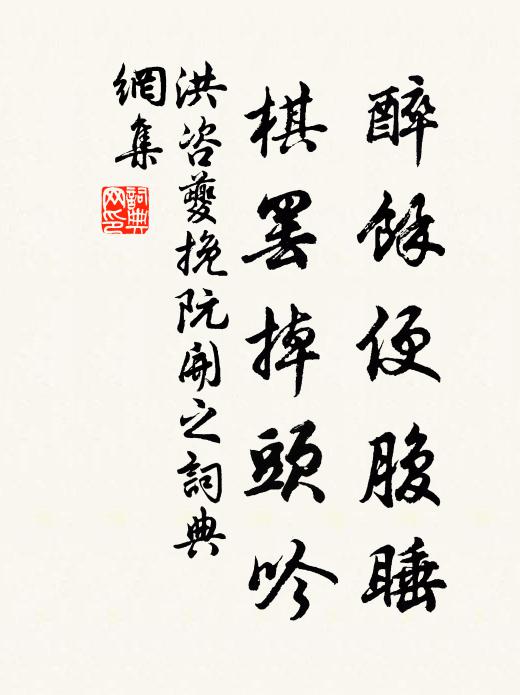 醉餘便腹睡
棋罷掉頭吟
洪咨夔挽阮開之詞典
網集
詞典網印